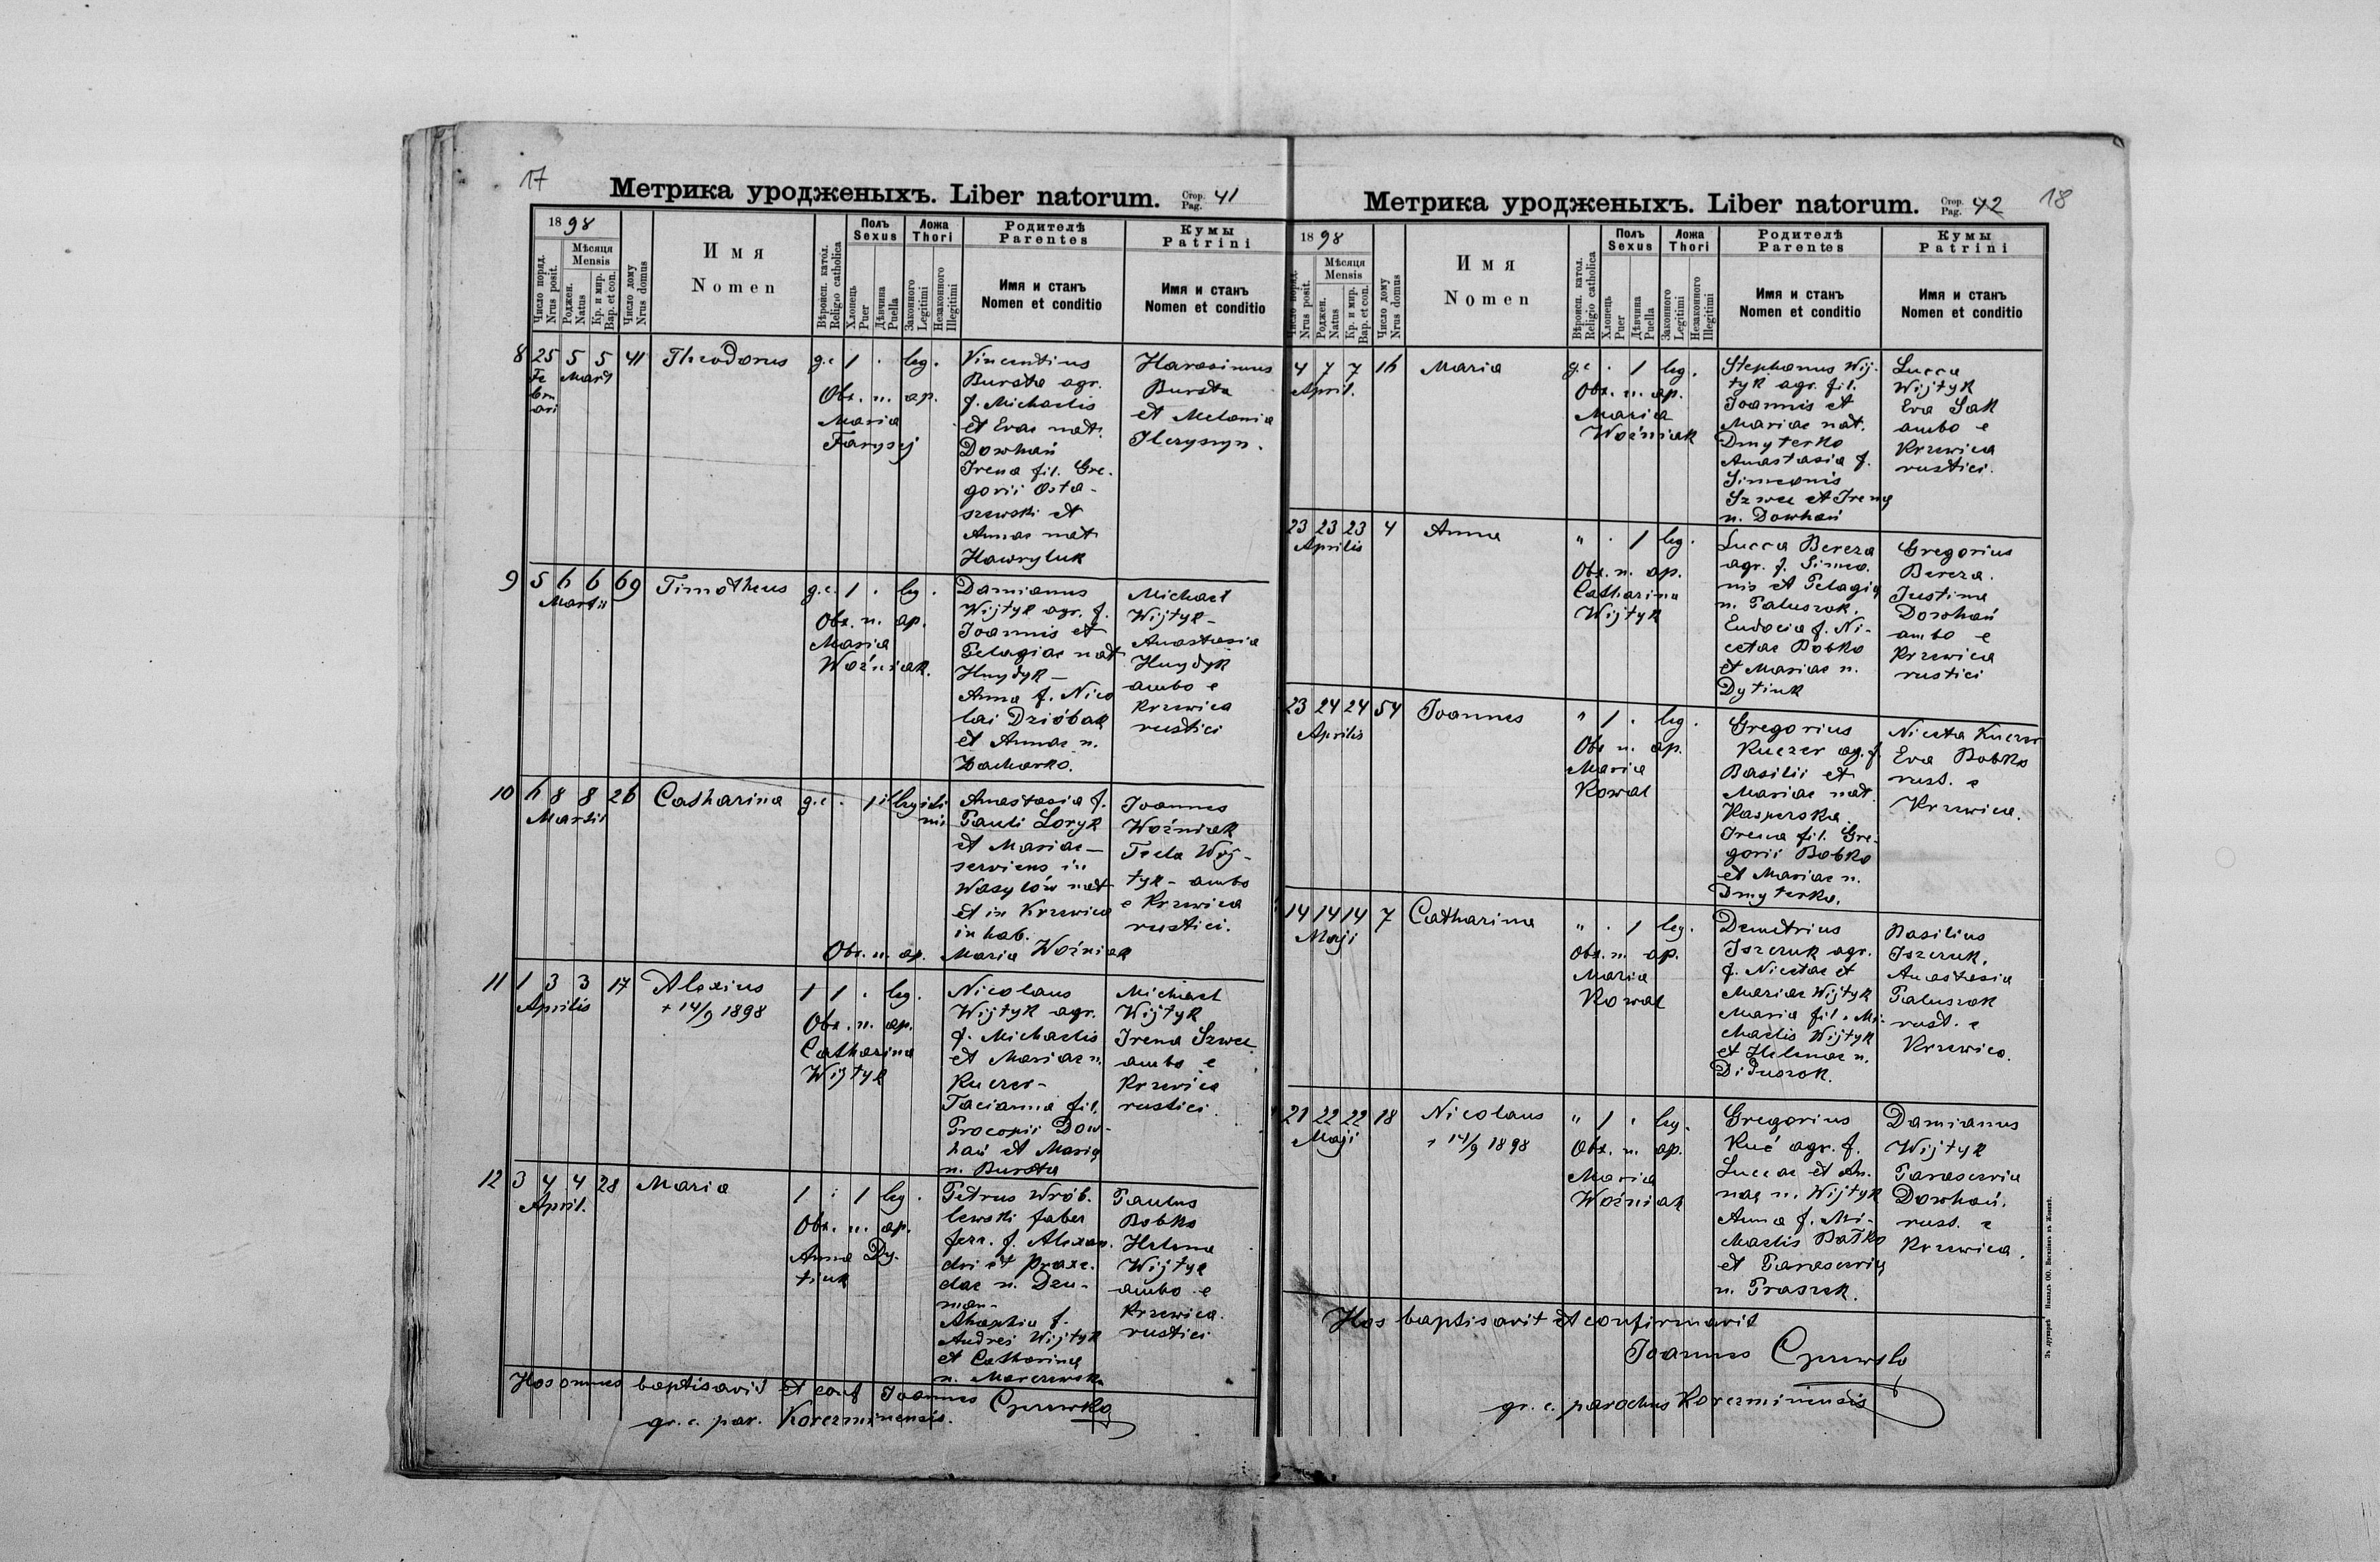 17
Метрика уродженыхъ. Liber natorum. Стор. Pag. 41
1898
Число поряд. Nrus posit.
Мѣсяця Mensis
Роджен. Natus
Кр. и мир. Bap. et con.
Число дому Nrus domus
Имя Nomen
Вѣроисп. катол. Religio catholica
Полъ Sexus
Хлопець Puer
Дѣвчина Puella
Ложа Thori
Законного Legitimi
Незаконного Illegitimi
Родителѣ Parentes
Имя и станъ Nomen et conditio
Кумы Patrini
Имя и станъ Nomen et conditio
8 25 5 5 41 Theodorus g.c 1 . leg.
Fe Mart
bru
ari
Obs. n. ap.
Maria
Farysej
Vincentius
Bursta agr.
f. Michaelis
et Evae nat.
Dowhań
Irena fil. Gre-
gorii Osta-
szewski et
Annae nat.
Hawryluk
Harasimus
Bursta
et Melania
9 5 6 6 69 Timotheus g.c. 1 . leg.
Martii
Obs. n. ap.
Maria
Woźniak.
Damianus
Wijtyk agr. f.
Joannis et
Pelagiae nat
Hnydyk –
Anna f. Nico
lai Dzióbak
et Annae n.
Michael
Wijtyk –
Anastasia
Hnydyk
ambo e
Krzewica
rustici
10 6 8 8 26 Catharina g.c. . 1 illegiti
Martii
mi
Anastasia f.
Pauli Loryk
et Mariae –
serviens in
Wasylów nat
et in Krzewica
inhab.
Joannes
Woźniak
Tecla Wij-
tyk – ambo
e Krzewica
rustici.
Obs. n. ap. Maria Woźniak
11 1 3 3 17 Alexius 1 1 . leg.
Aprilis
+ 14/9 1898
Obs. n. ap.
Catharina
Wijtyk
Nicolaus
Wijtyk agr.
f. Michaelis
et Mariae n.
Kuczer –
Tacianna fil.
Procopii Dow-
hań et Maria
n. Bursta
Michael
Wijtyk
Irena Szwec
ambo e
Krzewica
rustici.
12 3 4 4 28 Maria 1 . 1 leg.
April.
Obs. n. ap.
Anna Dy-
tiuk
Petrus Wrób-
lewski faber
ferr. f. Alexan-
dri et Praxe-
dae n. Dzu-
man –
f.
Andrei Wijtyk
et Catharina
n. Marczewska
Paulus
Bobko
Helena
Wijtyk
ambo e
Krzewica.
rustici
Hos omnes baptisavit et conf Joannes
gr. c. par. Korczminensis.
Метрика уродженыхъ. Liber natorum. Стор. Pag. 42
18
1898
Число поряд. Nrus posit.
Мѣсяця Mensis
Роджен. Natus
Кр. и мир. Bap. et con.
Число дому Nrus domus
Имя Nomen
Вѣроисп. катол. Religio catholica
Полъ Sexus
Хлопець Puer
Дѣвчина Puella
Ложа Thori
Законного Legitimi
Незаконного Illegitimi
Родителѣ Parentes
Имя и станъ Nomen et conditio
Кумы Patrini
Имя и станъ Nomen et conditio
4 7 7 16 Maria g.c . 1 leg.
April.
Obs. n. ap.
Maria
Woźniak
Stephanus Wij-
tyk agr. fil.
Joannis et
Mariae nat.
Dmyterko
Anastasia f.
Simeonis
Szwec et Irena
n. Dowhań
Lucca
Wijtyk
Eva Sak
ambo e
Krzewica
rustici.
23 23 23 4 Anna " . 1 leg.
Aprilis
Obs. n. ap.
Catharina
Wijtyk
Lucca Bereza
agr. f. Simeo-
nis et Pelagia
n. Paluszok.
Eudocia f. Ni-
cetae Bobko
et Mariae n.
Dytiuk
Gregorius
Bereza.
Justina
Dowhań
ambo e
Krzewica
rustici
23 24 24 54 Joannes " 1 . leg.
Aprilis
Obs n. ap.
Maria
Kowal
Gregorius
Kuczer ag. f.
Basilii et
Mariae nat.
Kasperska.
Irena fil. Gre-
gorii Bobko
et Mariae n.
Dmyterko.
Niceta Kuczer
Eva Bobko
rust. e
Krzewica.
14 14 14 7 Catharina " . 1 leg.
Maji
Obs. n. ap.
Maria
Kowal
Demetrius
Iszczuk agr.
f. Nicetae et
Mariae Wijtyk
Maria fil. Mi-
chaelis Wijtyk
et Helenae n.
Diduszok.
Basilius
Iszczuk.
Anastasia
Paluszok
rust. e
Krzewica.
21 22 22 18 Nicolaus " 1 . leg.
Maji
+ 14/9 1898
Obs. n. ap.
Maria
Woźniak
Gregorius
Kuć agr. f.
Luccae et An-
nae n. Wijtyk
Anna f. Mi-
chaelis Bałko
et Parascevia
n. Praszek.
Damianus
Wijtyk
Parascevia
Dowhań.
rust. e
Krzewica.
Hos baptisavit et confirmavit
Joannes
gr. c. parochus Korczminensis